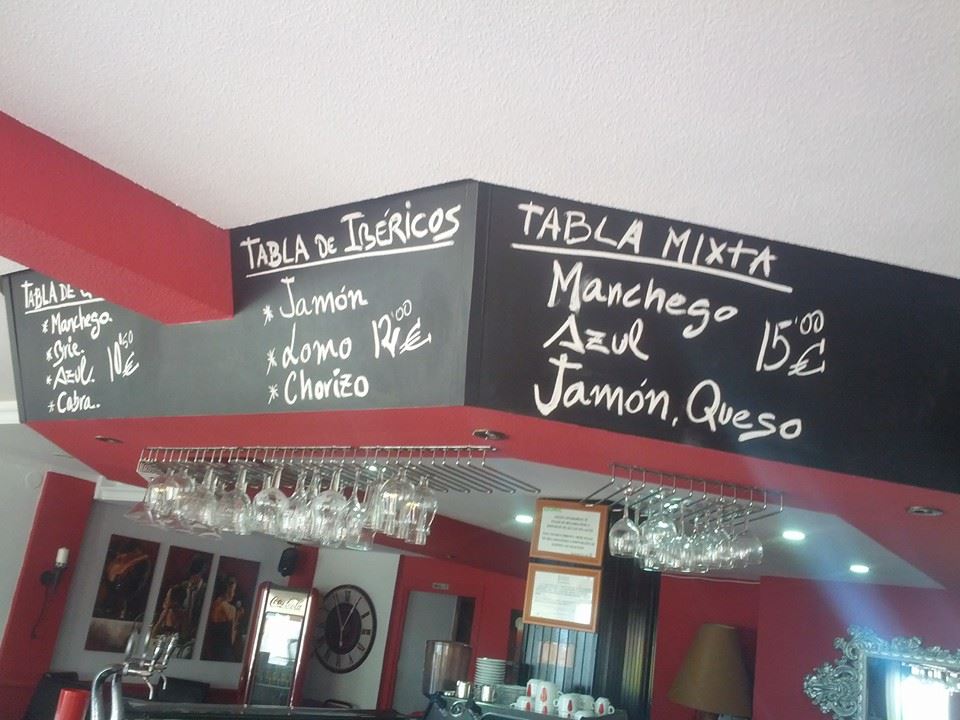 TABLA DE
* Manchego.
* Brie.
* Azul.
* Cabra.
10'50 €
TABLA DE IBÉRICOS
* Jamón
* Lomo
* Chorizo
12'00 €
TABLA MIXTA
Manchego
Azul
Jamón, Queso
15'00 €
Coca-Cola